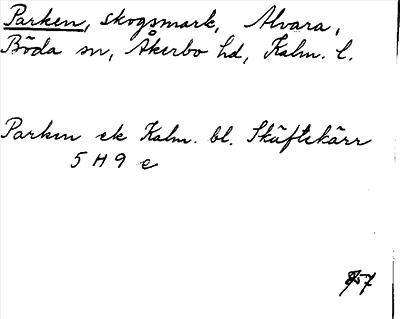 Parken, skogsmark, Alvara,
Böda sn, Åkerbo hd, Kalm. l.
Parken ek Kalm. bl. Skäftekärr
5 H 9 e